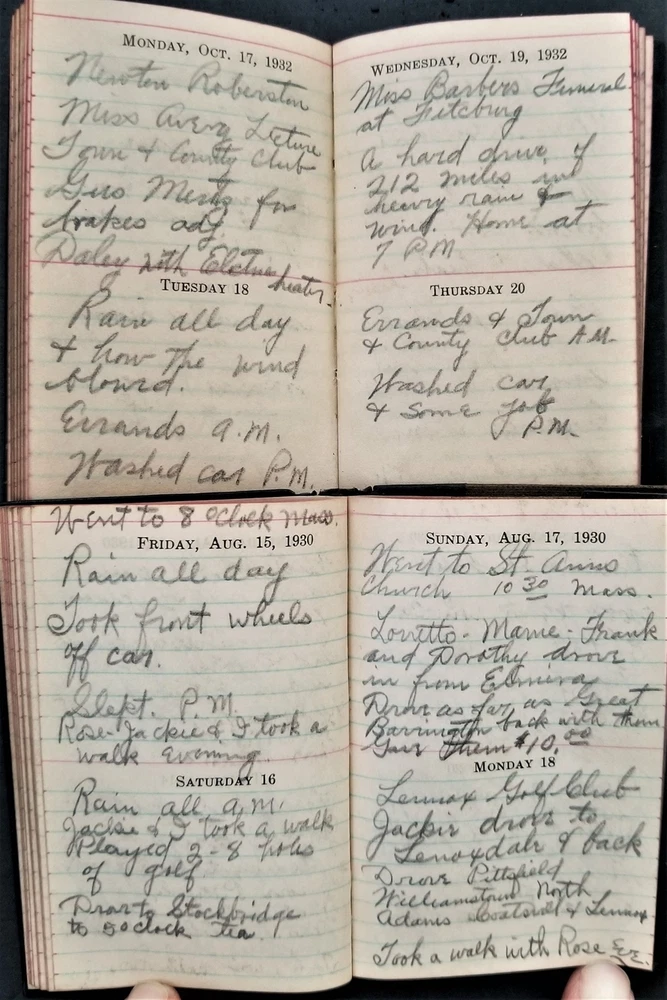 MONDAY, OCT. 17, 1932
Newton Roberston
Miss Avery Lecture
Town & County Club
Gus Mertz for
brakes adj.
Daley with Elctric heater.
TUESDAY 18
Rain all day
& how the wind
blowed.
Errands a.m.
Washed car P.m.
WEDNESDAY, OCT. 19, 1932
Miss Barbers Funeral
at Fitcburg
A hard drive of
212 miles in
heavy rain &
wind. Home at
7 P.M
THURSDAY 20
Errands & Town
& County Club A.M.
Washed car
& Some job
P.m.
Went to 8 o'clock Mass.
FRIDAY, AUG. 15, 1930
Rain all day
Took front wheels
off car.
Slept. P.M.
Rose-Jackie & I took a
walk evening.
SATURDAY 16
Rain all a.m.
Jackie & I took a walk
Played 2-8 holes
of golf.
to Stockbridge
to 5 oclock tea.
SUNDAY, AUG. 17, 1930
Went to St. Anns
Church 10 30 Mass.
Loretto-Mame-Frank
and Dorothy drove
in from Elmira
Drove as far as Great
Barrington back with them
Gave them $10.00
MONDAY 18
Lennox Golf Club
Jackie drove to
Lenoxdale & back
Drove Pittsfield
Williamstown North
Adams & Lennox
Took a walk with Rose Eve.